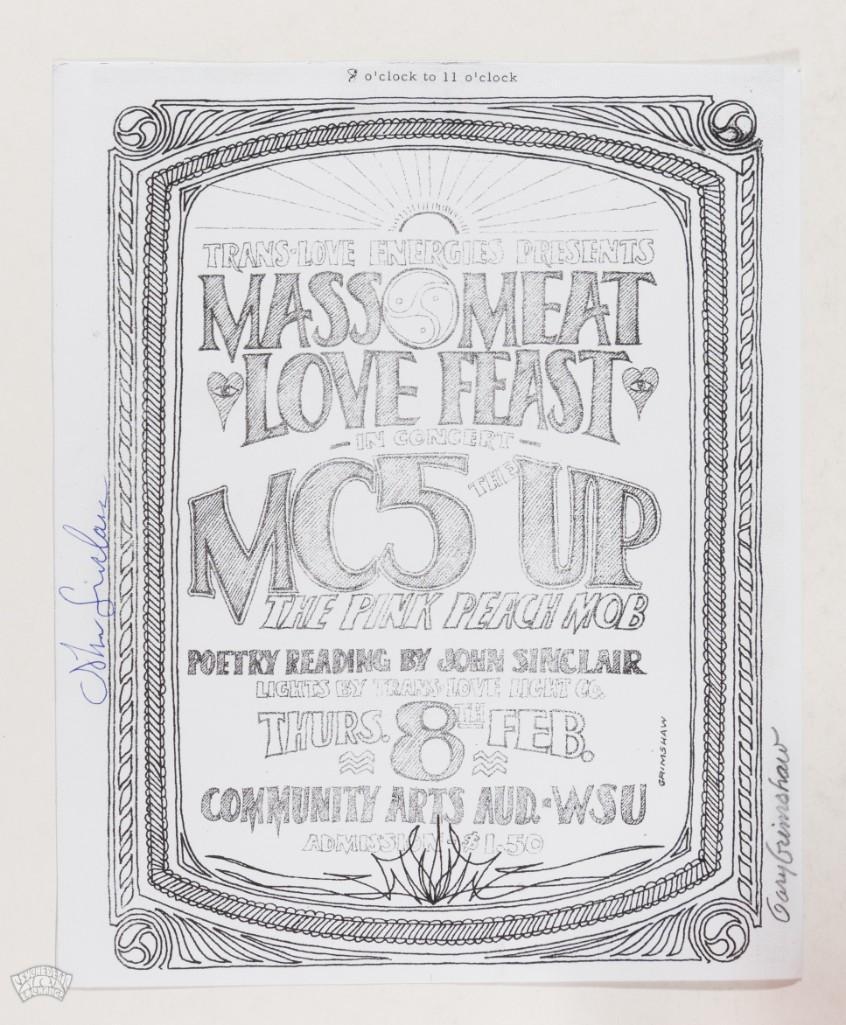 8 o'clock to 11 o'clock
TRANS-LOVE ENERGIES PRESENTS
MASS MEAT
LOVE FEAST
- IN CONCERT -
MC5 THE UP
THE PINK PEACH MOB
POETRY READING BY JOHN SINCLAIR
LIGHTS BY TRANS-LOVE LIGHT CO.
THURS. 8TH FEB.
GRIMSHAW
COMMUNITY ARTS AUD. • WSU
ADMISSION • $1.50
John Sinclair
Gary Grimshaw
PSYCHEDELIC
EXCHANGE